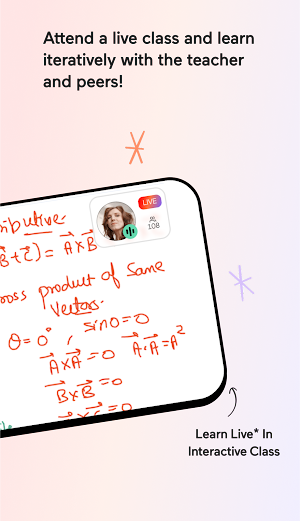 Attend a live class and learn
iteratively with the teacher
and peers!
LIVE
108
ributive
B⃗+C⃗)= A⃗×B⃗
ross product of Same
Vectors
θ=0° , sin0=0
A⃗×A⃗=0 A⃗·A⃗=A²
B⃗×B⃗=0
Learn Live* In
Interactive Class